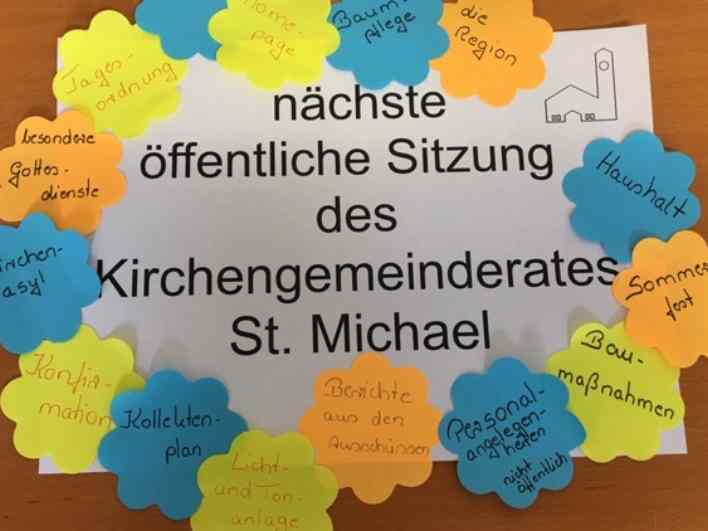 Home-
page
Baum-
pflege
die
Region
Tages-
ordnung
nächste
öffentliche Sitzung
des
Kirchengemeinderates
St. Michael
besondere
Gottes-
dienste
Haushalt
irchen-
asyl
Sommer
fest
Konfir-
mation
Bau-
maßnahmen
Kollekten-
plan
Berichte
aus den
Ausschüssen
Personal-
angelegen-
heiten
nicht
öffentlich
Licht-
und Ton-
anlage